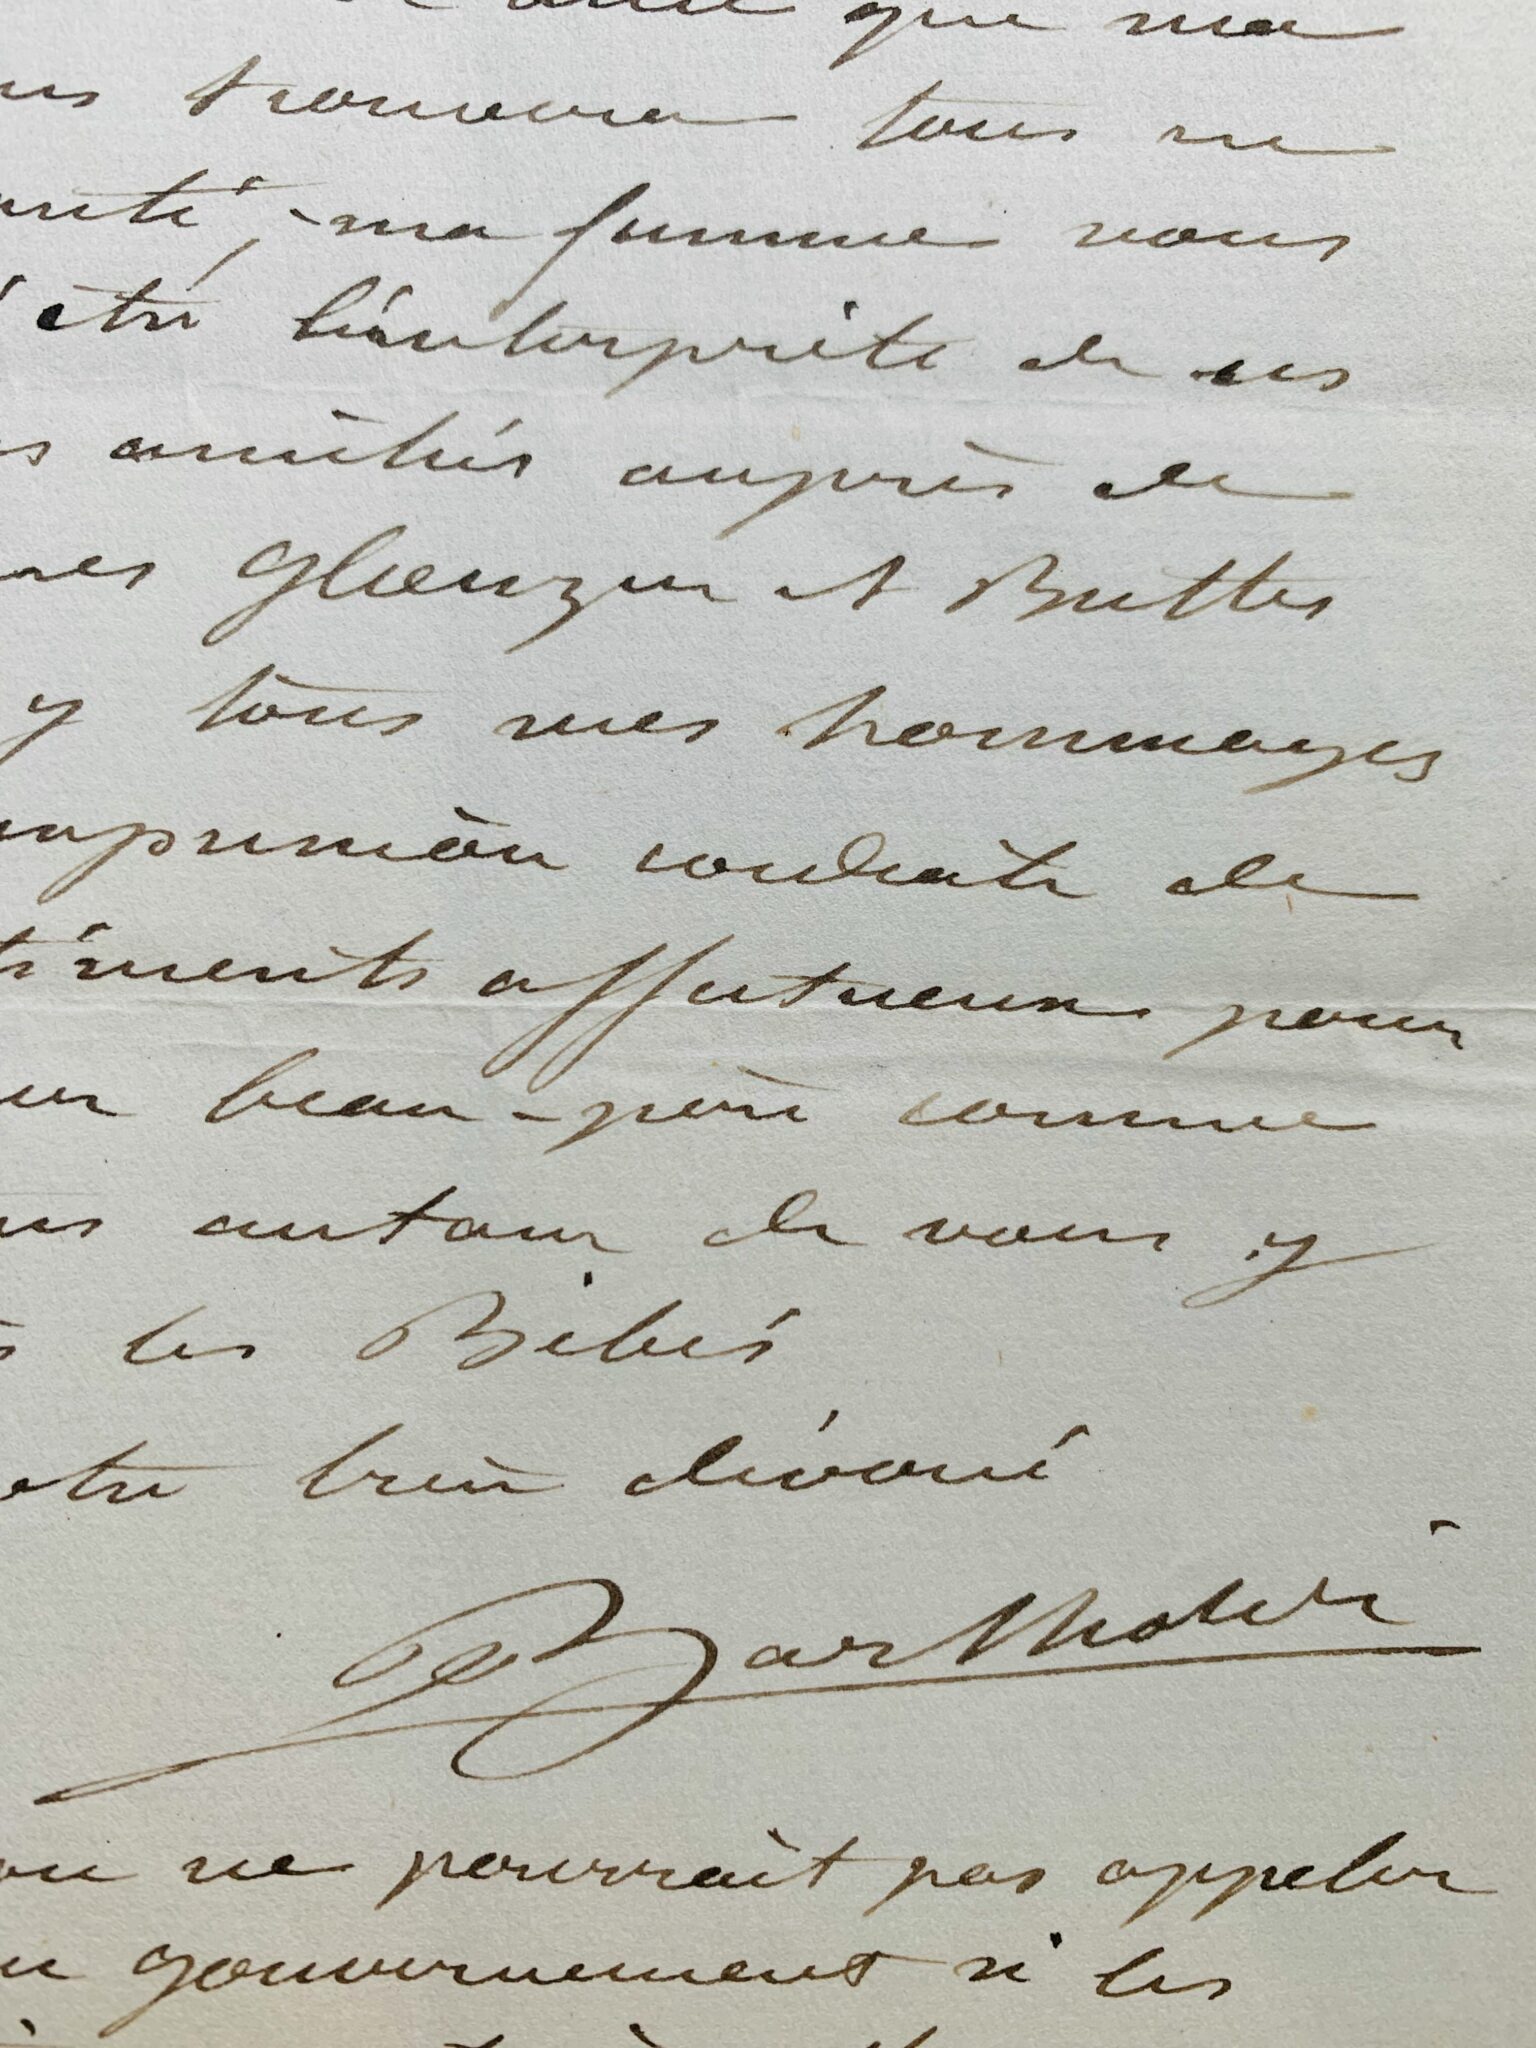 que ma
trouvera tous en
santé, - ma femme vous
été l'interprète de ses
amitiés auprès de
mes Glaenzer et Buttes
y tous mes hommages
l'expression cordiale de
timents affectueux pour
beau-père comme
autour de vous y
les Bébés
otre bien dévoué
Bartholdi
ne pourrait pas appeler
gouvernement si les